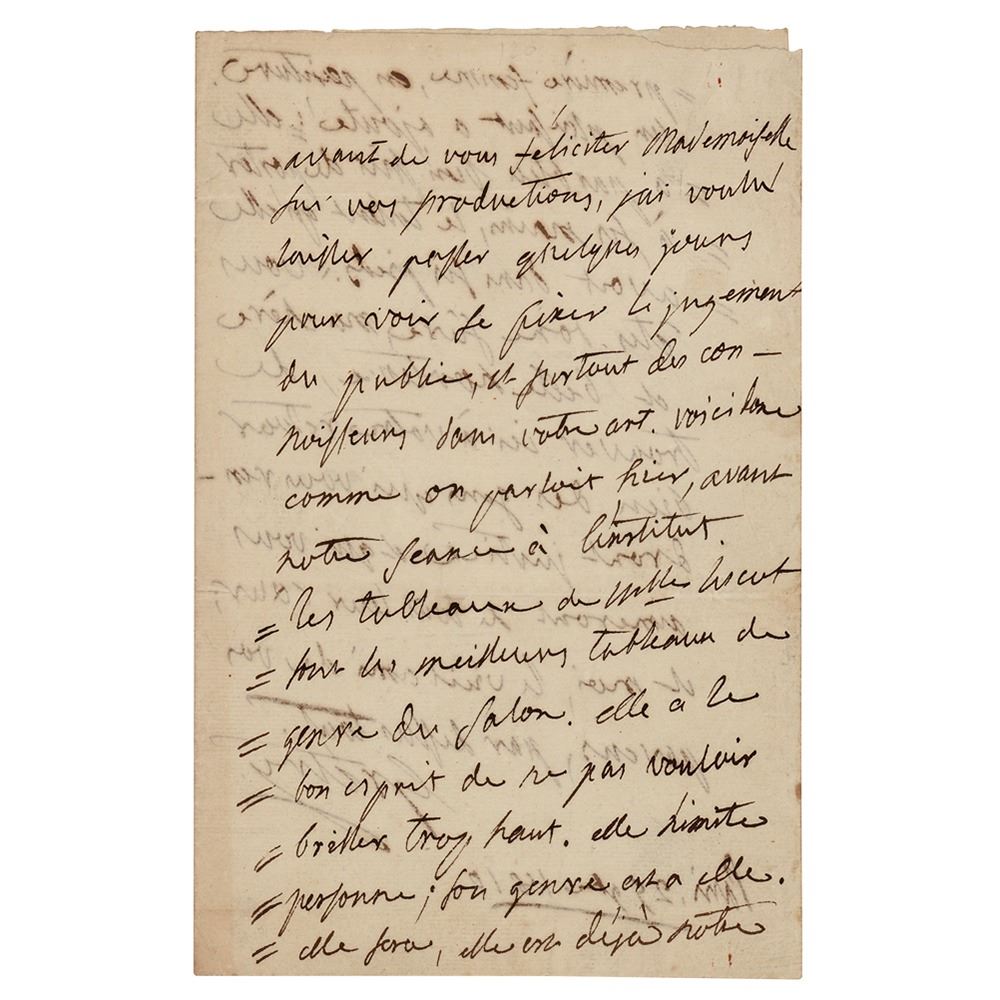 avant de vous féliciter Mademoiselle
sur vos productions, j'ai voulu
laisser passer quelques jours
pour voir se fixer le jugement
du public, et surtout des con-
noisseurs dans votre art. voici donc
comme on parloit hier, avant
notre seance à l'institut.
= les tableaux de Mlle Lescot
= sont les meilleurs tableaux de
= genre du salon. elle a le
= bon esprit de ne pas vouloir
= briller trop haut. elle n'imite
= personne; son genre est a elle.
= elle sera, elle est déjà notre